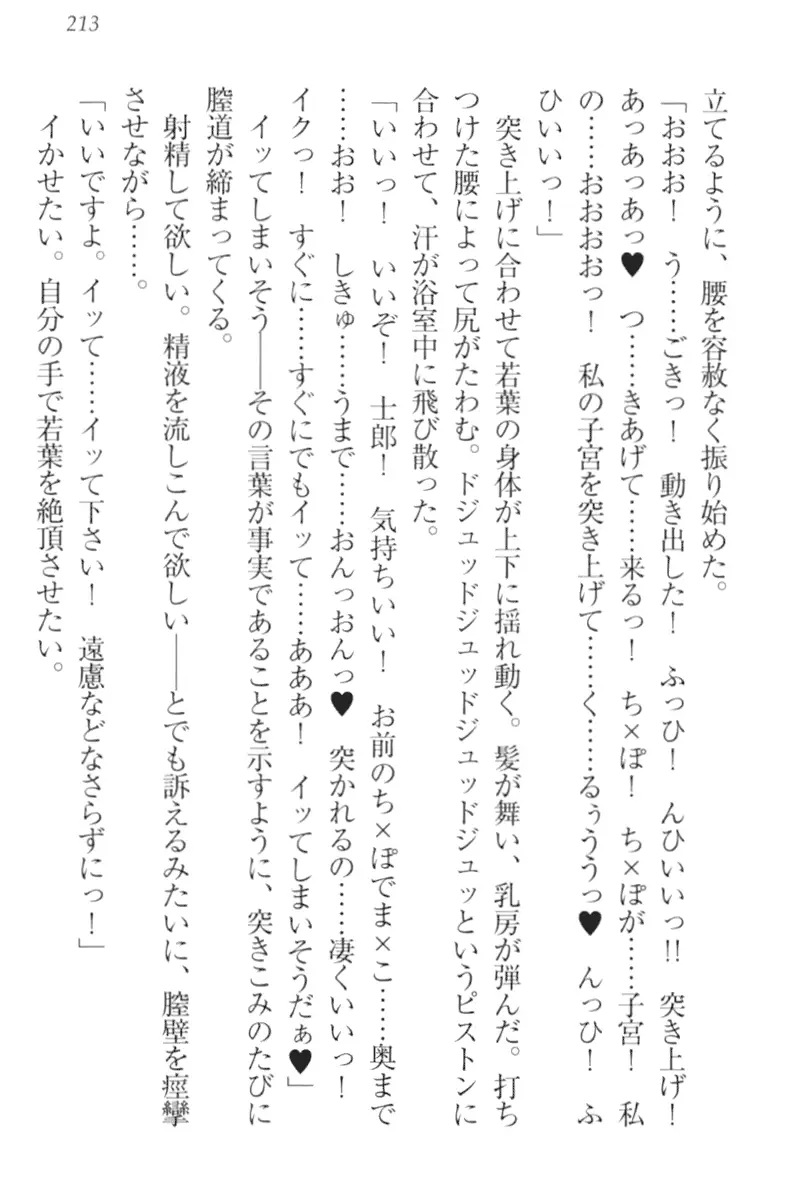 213
立てるように、腰を容赦なく振り始めた。
「おおお！　う……ごきっ！　動き出した！　ふっひ！　んひいいっ!!　突き上げ！
あっあっあっ♥　つ……きあげて……来るっ！　ち×ぽ！　ち×ぽが……子宮！　私
の……おおおおっ！　私の子宮を突き上げて……く……るぅううっ♥　んっひ！　ふ
ひいいっ！」
　突き上げに合わせて若葉の身体が上下に揺れ動く。髪が舞い、乳房が弾んだ。打ち
つけた腰によって尻がたわむ。ドジュッドジュッドジュッドジュッというピストンに
合わせて、汗が浴室中に飛び散った。
「いいっ！　いいぞ！　士郎！　気持ちいい！　お前のち×ぽでま×こ……奥まで
……おお！　しきゅ……うまで……おんっおんっ♥　突かれるの……凄くいいっ！
イクっ！　すぐに……すぐにでもイッて……あああ！　イッてしまいそうだぁ♥」
　イッてしまいそう――その言葉が事実であることを示すように、突きこみのたびに
膣道が締まってくる。
　射精して欲しい。精液を流しこんで欲しい――とでも訴えるみたいに、膣壁を痙攣
させながら……。
「いいですよ。イッて……イッて下さい！　遠慮などなさらずにっ！」
　イかせたい。自分の手で若葉を絶頂させたい。